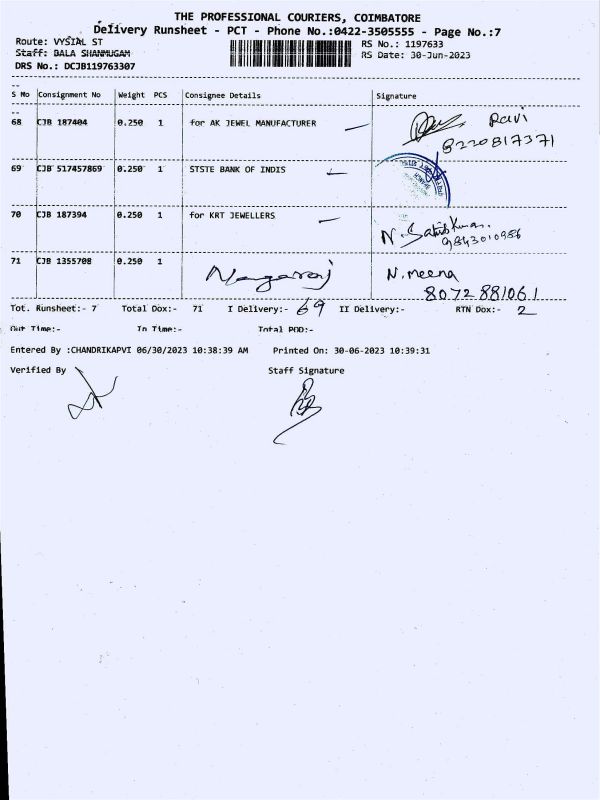 THE PROFESSIONAL COURIERS, COIMBATORE
Delivery Runsheet - PCT - Phone No.:0422-3505555 - Page No.:7
Route: VYSIAL ST
RS No.: 1197633
Staff: BALA SHANMUGAM
RS Date: 30-Jun-2023
DRS No.: DCJB119763307
S No Consignment No Weight PCS Consignee Details Signature
68 CJB 187404 0.250 1 for AK JEWEL MANUFACTURER Ravi
8220817371
69 CJB 517457869 0.250 1 STSTE BANK OF INDIS
70 CJB 187394 0.250 1 for KRT JEWELLERS N. Sathish Kumar.
9843010986
71 CJB 1355708 0.250 1 Nagaraj N. Meena
8072881061
Tot. Runsheet:- 7 Total Dox:- 71 I Delivery:- 69 II Delivery:- RTN Dox:- 2
Out Time:- In Time:- Total POD:-
Entered By :CHANDRIKAPVI 06/30/2023 10:38:39 AM Printed On: 30-06-2023 10:39:31
Verified By Staff Signature